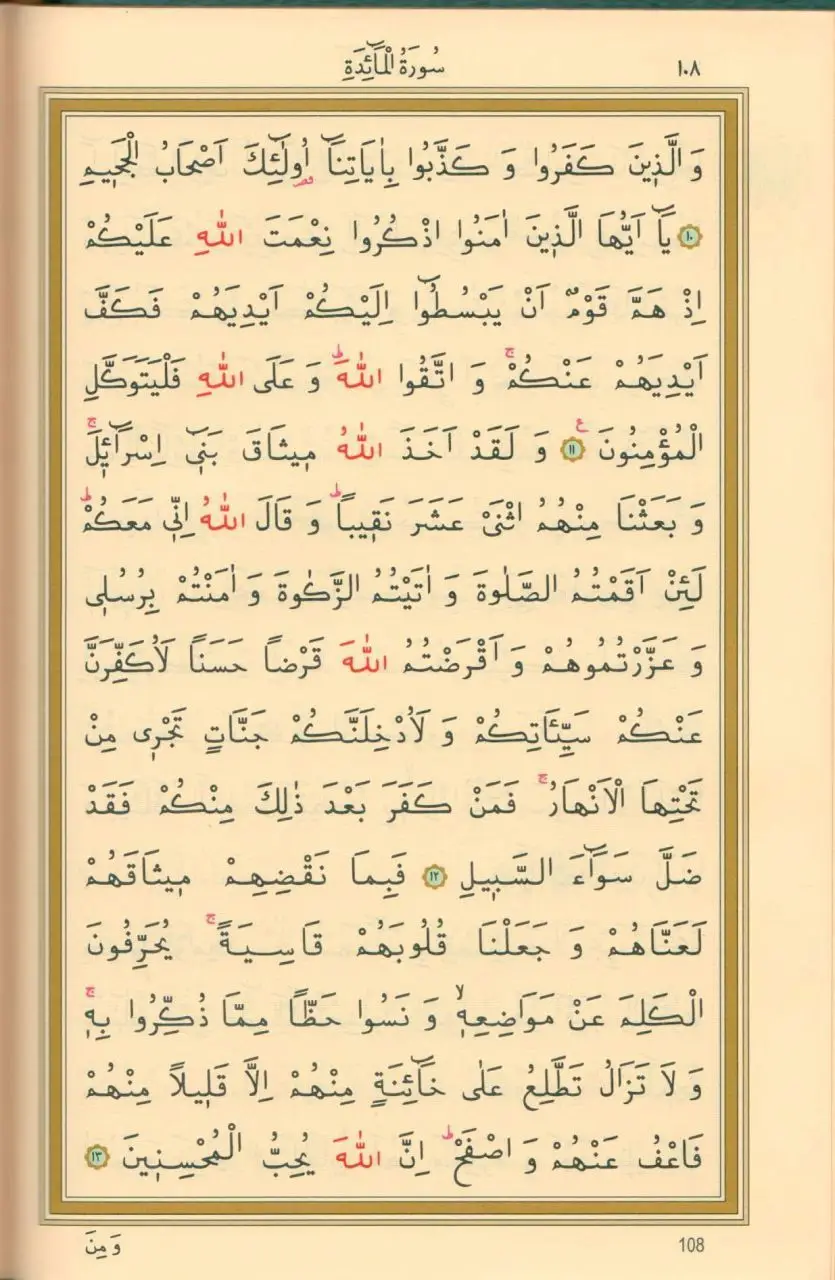 سُورَةُ الْمَٓائِدَةِ
١٠٨
وَ الَّذ۪ينَ كَفَرُوا وَ كَذَّبُوا بِاٰيَاتِنَٓا اُو۬لٰٓئِكَ اَصْحَابُ الْجَح۪يمِ
﴿١٠﴾ يَٓا اَيُّهَا الَّذ۪ينَ اٰمَنُوا اذْكُرُوا نِعْمَتَ اللّٰهِ عَلَيْكُمْ
اِذْ هَمَّ قَوْمٌ اَنْ يَبْسُطُٓوا اِلَيْكُمْ اَيْدِيَهُمْ فَكَفَّ
اَيْدِيَهُمْ عَنْكُمْۚ وَ اتَّقُوا اللّٰهَۜ وَ عَلَى اللّٰهِ فَلْيَتَوَكَّلِ
الْمُؤْمِنُونَ ع ﴿١١﴾ وَ لَقَدْ اَخَذَ اللّٰهُ م۪يثَاقَ بَن۪ٓي اِسْرَٓائ۪لَۚ
وَ بَعَثْنَا مِنْهُمُ اثْنَيْ عَشَرَ نَق۪يباًۜ وَ قَالَ اللّٰهُ اِنّ۪ي مَعَكُمْۜ
لَئِنْ اَقَمْتُمُ الصَّلٰوةَ وَ اٰتَيْتُمُ الزَّكٰوةَ وَ اٰمَنْتُمْ بِرُسُل۪ي
وَ عَزَّرْتُمُوهُمْ وَ اَقْرَضْتُمُ اللّٰهَ قَرْضاً حَسَناً لَاُكَفِّرَنَّ
عَنْكُمْ سَيِّـَٔاتِكُمْ وَ لَاُدْخِلَنَّكُمْ جَنَّاتٍ تَجْر۪ي مِنْ
تَحْتِهَا الْاَنْهَارُۚ فَمَنْ كَفَرَ بَعْدَ ذٰلِكَ مِنْكُمْ فَقَدْ
ضَلَّ سَوَٓاءَ السَّب۪يلِ ﴿١٢﴾ فَبِمَا نَقْضِهِمْ م۪يثَاقَهُمْ
لَعَنَّاهُمْ وَ جَعَلْنَا قُلُوبَهُمْ قَاسِيَةًۚ يُحَرِّفُونَ
الْكَلِمَ عَنْ مَوَاضِعِه۪ۙ وَ نَسُوا حَظًّا مِمَّا ذُكِّرُوا بِه۪ۚ
وَ لَا تَزَالُ تَطَّلِعُ عَلٰى خَٓائِنَةٍ مِنْهُمْ اِلَّا قَل۪يلاً مِنْهُمْ
فَاعْفُ عَنْهُمْ وَ اصْفَحْۜ اِنَّ اللّٰهَ يُحِبُّ الْمُحْسِن۪ينَ ﴿١٣﴾
وَ مِنَ
108